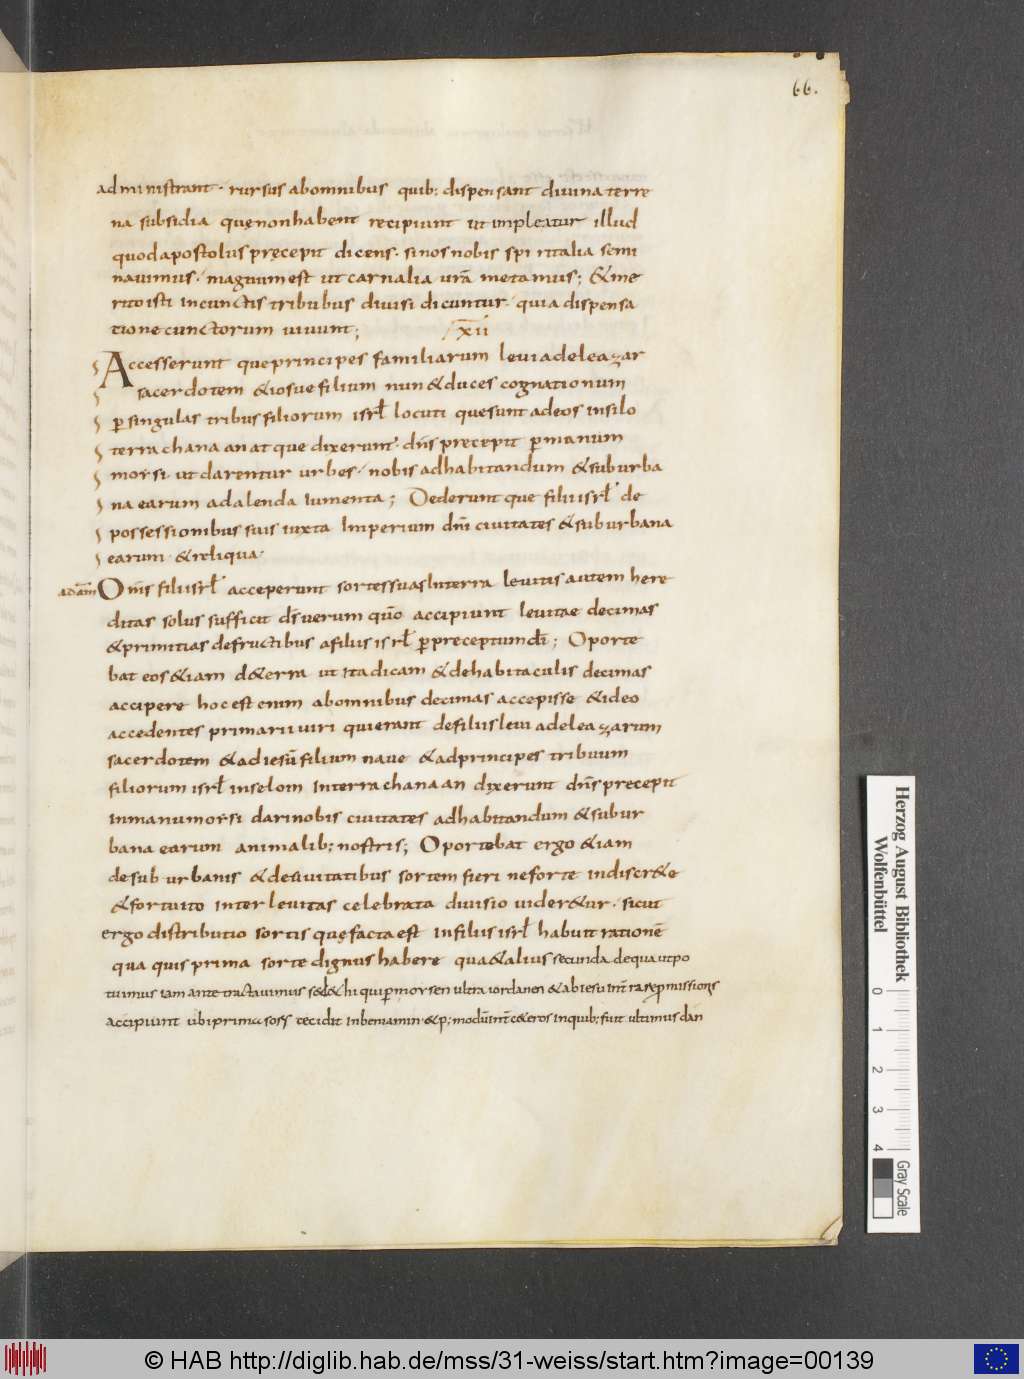 66.
administrant· rursus abomnibus quib: dispensant diuina terre
na subsidia quęnonhabent recipiunt ut impleatur illud
quodapostolus pręcepit dicens· sinosnobis spiritalia semi
nauimus· magnumest ut carnalia urā metamus; &me
ritoisti incunctis tribubus diuisi dicuntur· quia dispensa
tione cunctorum uiuunt; xii
Accesserunt queprincipes familiarum leui adeleazar
sacerdotem &iosue filium nun &duces cognationum
p̲singulas tribus filiorum isrl̄ locuti quesunt adeos insilo
terra chanaan atque dixerunt· dn̄s pręcepit p̲manum
morsi· ut darentur urbes· nobis adhabitandum &suburba
na earum adalenda iumenta; Dederunt que filii isrl̄ de
possessionibus suis iuxta Imperium dn̄i ciuitates &suburbana
earum· &reliqua·
adam̄ Om̄s filii isrl̄ acceperunt sortes suas Interra leuitis autem here
ditas solus sufficit ds̄ uerum quō accipiunt leuitae decimas
&primitias defructibus afiliis isrl̄ p̲preceptum dī; Oporte
bat eos &iam d&erra ut Ita dicam &dehabitaculis decimas
accipere hoc est enim abomnibus decimas accepisse &ideo
accedentes primarii uiri quierant defiliis leui adeleazarum
sacerdotem &adiesū filium naue &adprincipes tribuum
filiorum isrl̄ inselom Interra chanaan dixerunt dn̄s precepit
Inmanumorsi darinobis ciuitates adhabitandum &subur
bana earum animalib: nostris; Oportebat ergo &iam
desub urbanis &deciuitatibus sortem fieri neforte indiscr&e
&fortuito inter leuitas celebrata diuisio uider&ur· sicut
ergo distributio sortis quęfacta est infiliis isrl̄ habuit rationē
qua quis prima sorte dignus habere qua&alius secunda dequa utpo
tuimus iam ante tractauimus sed&hi quip̲morsen ultra iordanen &abiesu
accipiunt ubi prima sors cecidit inbeniamin &p; modū Int̄ c&eros Inquib: fuit ultimus dan
Herzog August Bibliothek
Wolfenbüttel
0 1 2 3 4
Gray Scale
© HAB http://diglib.hab.de/mss/31-weiss/start.htm?image=00139